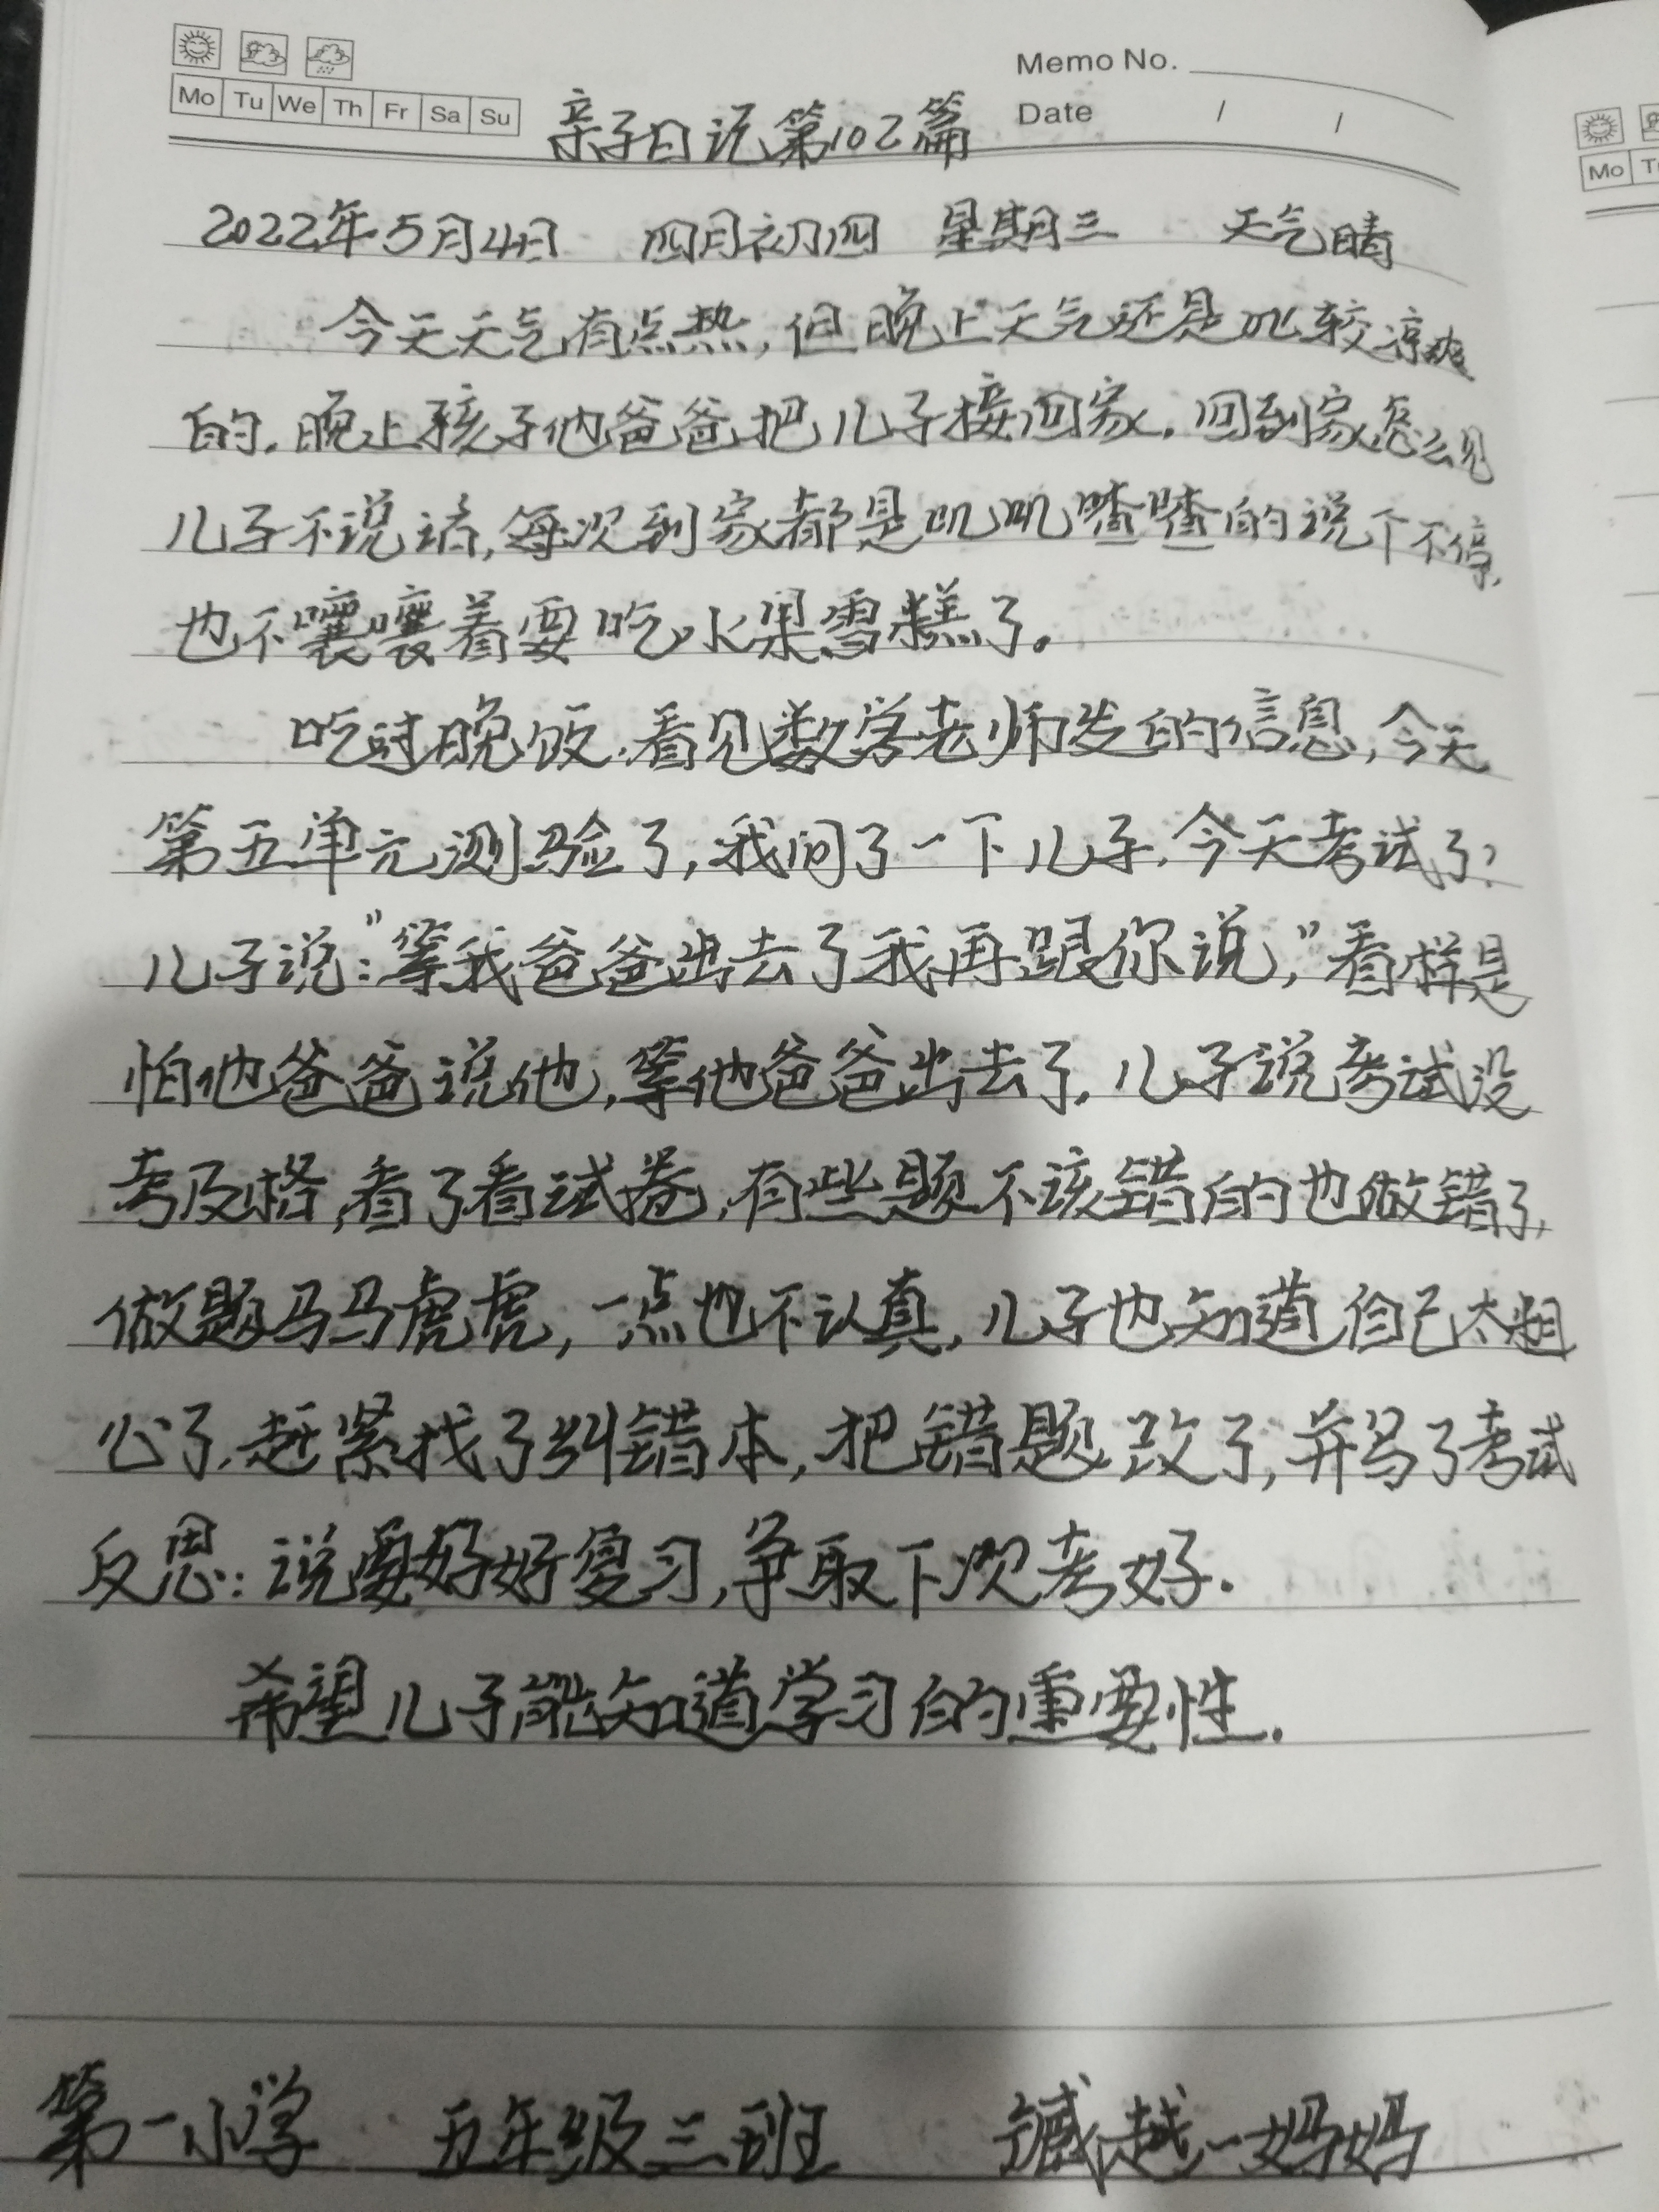 Memo No.
Mo Tu We Th Fr Sa Su
Date / /
亲子日记第102篇
2022年5月4日 四月初四 星期三 天气晴
今天天气有点热,但晚上天气还是比较凉爽
的.晚上孩子他爸爸把儿子接回家.回到家怎么见
儿子不说话,每次到家都是叽叽喳喳的说个不停,
也不嚷嚷着要吃水果雪糕了。
吃过晚饭.看见数学老师发的信息,今天
第五单元测验了,我问了一下儿子.今天考试了?
儿子说:"等我爸爸出去了我再跟你说,"看样是
怕他爸爸说他,等他爸爸出去了.儿子说考试没
考及格,看了看试卷,有些题不该错的也做错了,
做题马马虎虎,一点也不认真,儿子也知道自己太粗
心了.赶紧找了纠错本,把错题改了,并写了考试
反思:说要好好复习,争取下次考好.
希望儿子能知道学习的重要性.
第一小学 五年级三班 越一妈妈
Mo